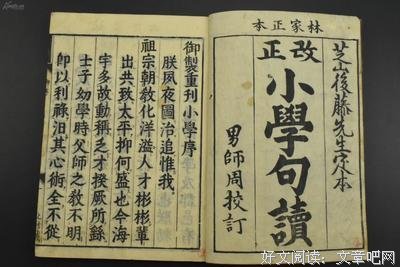 林家正本
芝山後藤先生定本
改正
小學句讀
男師周校訂
御製重刊小學序
朕夙夜圖治追惟我
祖宗朝敎化洋溢人才彬彬輩
出共致太平抑何盛也今海
宇多故動稱乏才揆厥所繇
士子幼學時父師之敎不明
即以利祿汨其心術全不從
好文阅读：文章吧网